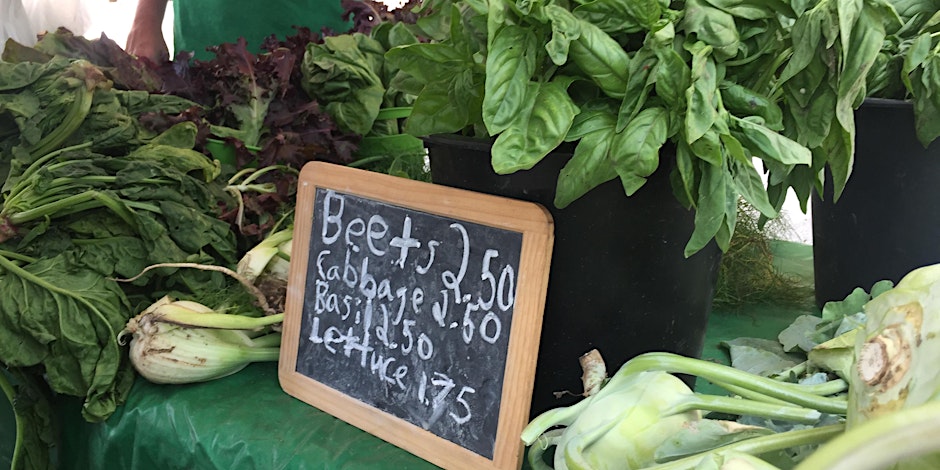 Beets 2.50
Cabbage 2.50
Basil 2.50
Lettuce 1.75